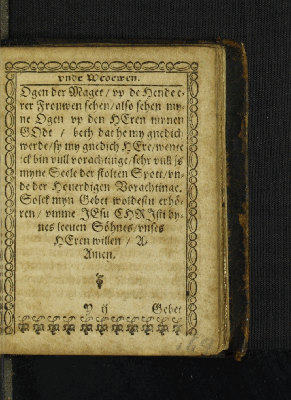 vnde Wedewen.
Ogen der Maget / vp de Hende e-
rer Frouwen sehen / also sehen my-
ne Ogen vp den HEren mynen
GOdt / beth dat he my gnedich
werde / sy my gnedich HEre / wente
ick bin vull vorachtinge / sehr vull is
myne Seele der stolten Spott / vn-
de der Heuerdigen Vorachtinge.
Solck myn Gebet woldestu erhö-
ren / vmme JEsu CHRJsti dy-
nes leeuen Söhnes / vnses
HEren willen / A
Amen.
Y ij Gebet